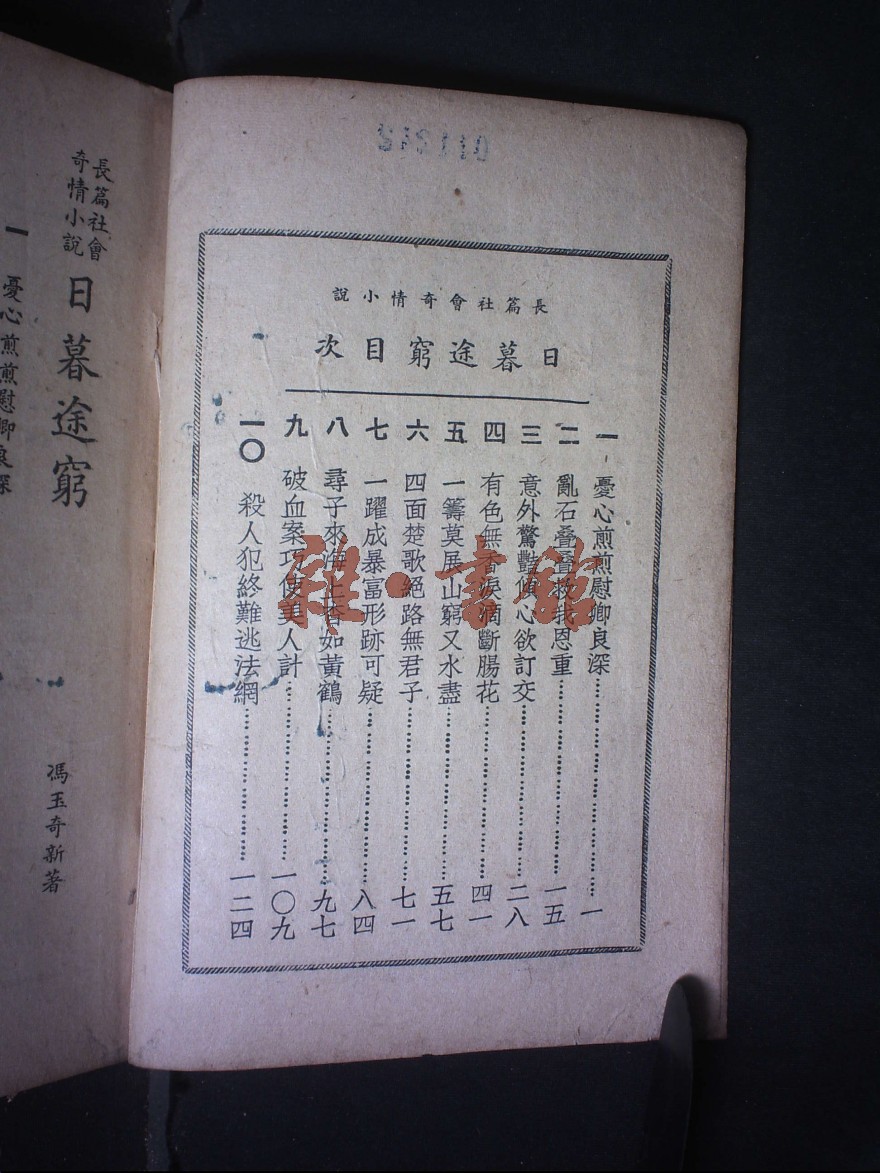 011342
長篇社會奇情小說
日暮途窮目次
一 憂心煎煎慰卿良深……一
二 亂石叠叠救我恩重……一五
三 意外驚豔傾心欲訂交……二八
四 有色無香淚滴斷腸花……四一
五 一籌莫展山窮又水盡……五七
六 四面楚歌絕路無君子……七一
七 一躍成暴富形跡可疑……八四
八 尋子來海上杳如黃鶴……九七
九 破血案巧使美人計……一〇九
一〇 殺人犯終難逃法網……一二四
雜·書館
長篇社會
奇情小說
日暮途窮
馮玉奇新著
一 憂心煎煎慰卿良深